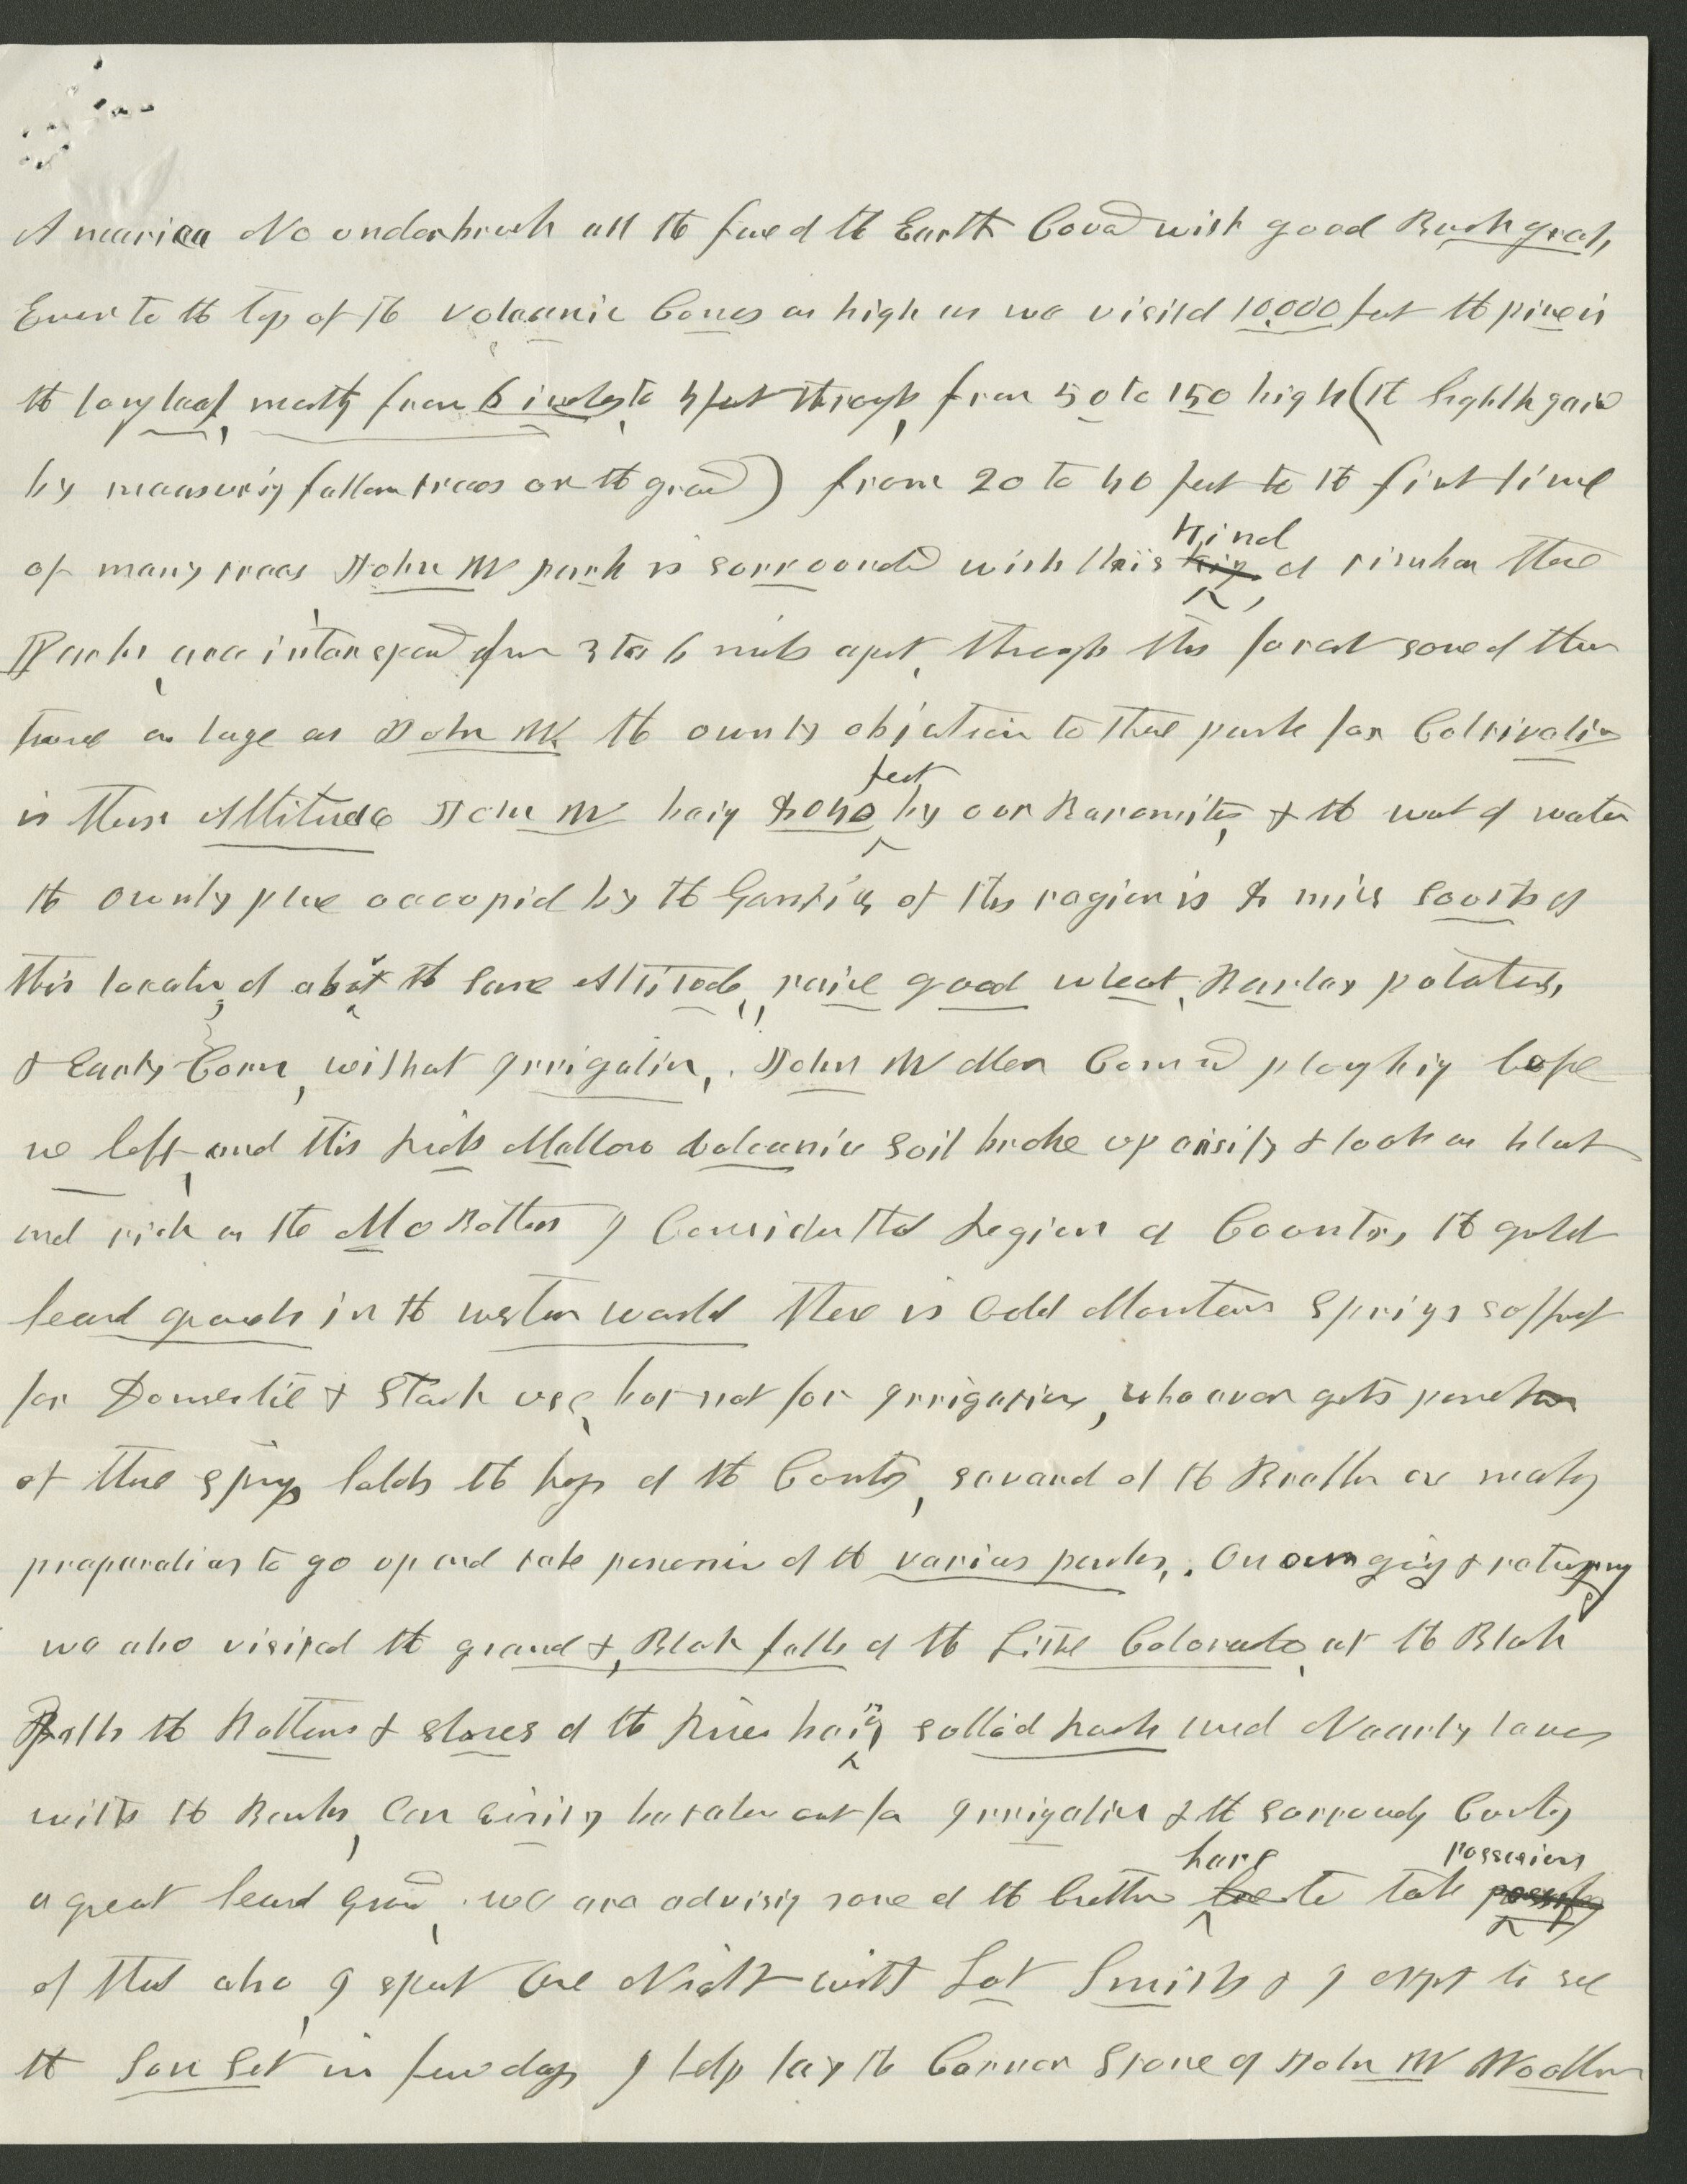 America No underbrush all the face of the Earth Coverd with good Bush grass,
Even to the top of the volcanic Cones as high as we visited 10,000 feet the pine is
the long leaf, mostly from 6 inches to 4 feet through, from 50 to 150 high (the highth gaind
by measuring fallen trees on the ground) from 20 to 40 feet to the first limb
of many trees John W park is sorrounded with this kind of timber these
Parks, are interspersed from 3 to 6 miles apart, through this forest some of them
as large as John W. the ownly objection to these parks for Coltivation
is their Altitude John W being feet by our Barometer, & the want of water
the ownly place occopied by the Gentiles of this region is miles south of
this location of about the same Altitude, raise good wheat, Barley potatoes,
& Early Corn, without Irrigation,. John W Men Commenced ploughing before
we left, and this rich Mellow volcanic soil broke up easily & look as black
and rich as the Mo Bottoms I Consider this Region of Country, the gold
herd grounds in the western world there is Cold Mountain Springs
for Domestic & Stock use, but not for Irrigation, who ever gets possession
of these springs holds the keys of the Country, several of the Brethren are making
preparations to go up and take possession of the various parks,. On our going & returning
we also visited the grand &, Black falls of the Little Colorado, at the Black
Falls the Bottoms & shores of the River being sollid Rock and Nearly level
with the Banks, Can Easily be taken out for Irrigation & the sorrounding Country
a great herd ground, we are advising some of the brethren here to take possession
of that also, I spent One Night with Lot Smith & I expect to see
the Sun Set in few days I help lay the Corner Stone of John W Woollen